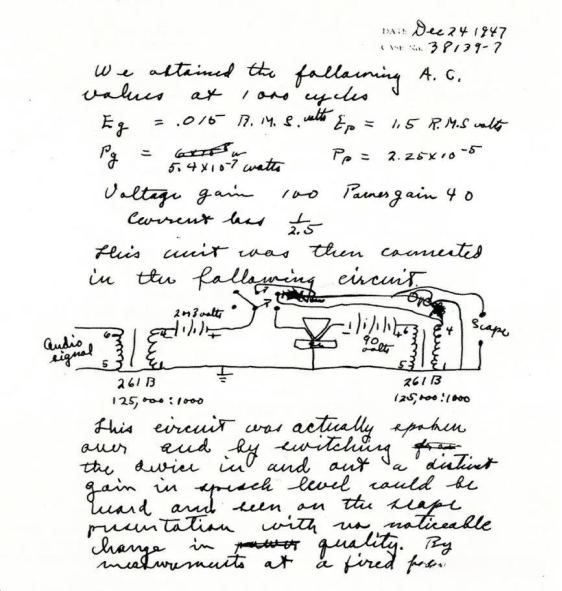 DATE Dec 24 1947
CASE No. 38139-7
We obtained the following A.C.
values at 1000 cycles
Eg = .015 R.M.S. volts Ep = 1.5 R.M.S volts
Pg = 5.4 x 10-7 watts Pp = 2.25 x 10-5
Voltage gain 100 Power gain 40
Current loss 1/2.5
This unit was then connected
in the following circuit.
2 x 3 volts
90 volts
Scope
Audio signal
6 5 4 1
6 5 4 1
261B 261B
125,000:1000 125,000:1000
This circuit was actually spoken
over and by switching
the device in and out a distinct
gain in speech level could be
heard and seen on the scope
presentation with no noticeable
change in quality. By
measurements at a fixed